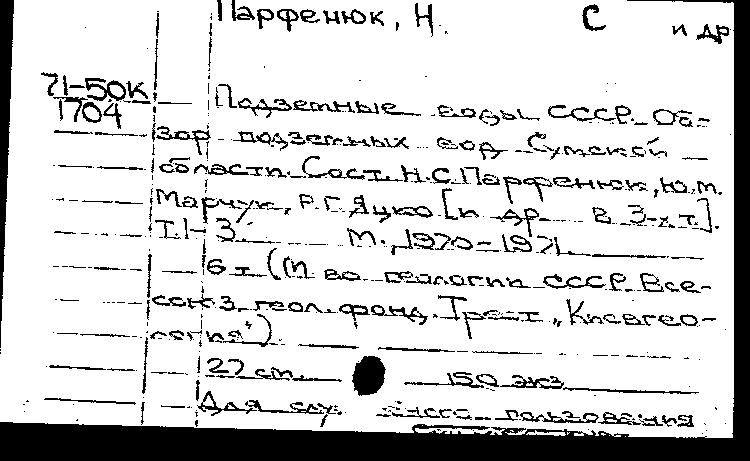 Парфенюк, Н. С и др
71-50К
1704
Подземные воды СССР. Об-
зор подземных вод Сумской
области. Сост. Н.С. Парфенюк, Ю.М.
Марчук, Р.Г. Яцко [и др. В 3-х т.].
Т.1-3. М., 1970-1971.
(М во геологии СССР. Все-
союз. геол. фонд. Трест „Киевгео-
логия")
27 см. 150 экз
Для пользования